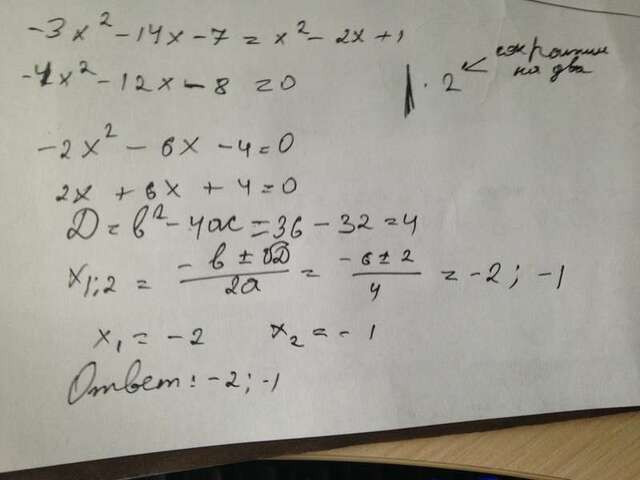 -3x² - 14x - 7 = x² - 2x + 1
-4x² - 12x - 8 = 0 | · 2 ← сократим на два
-2x² - 6x - 4 = 0
2x + 6x + 4 = 0
D = b² - 4ac = 36 - 32 = 4
x₁;₂ = (-b ± √D)/2a = (-6 ± 2)/4 = -2; -1
x₁ = -2 x₂ = -1
Ответ: -2; -1